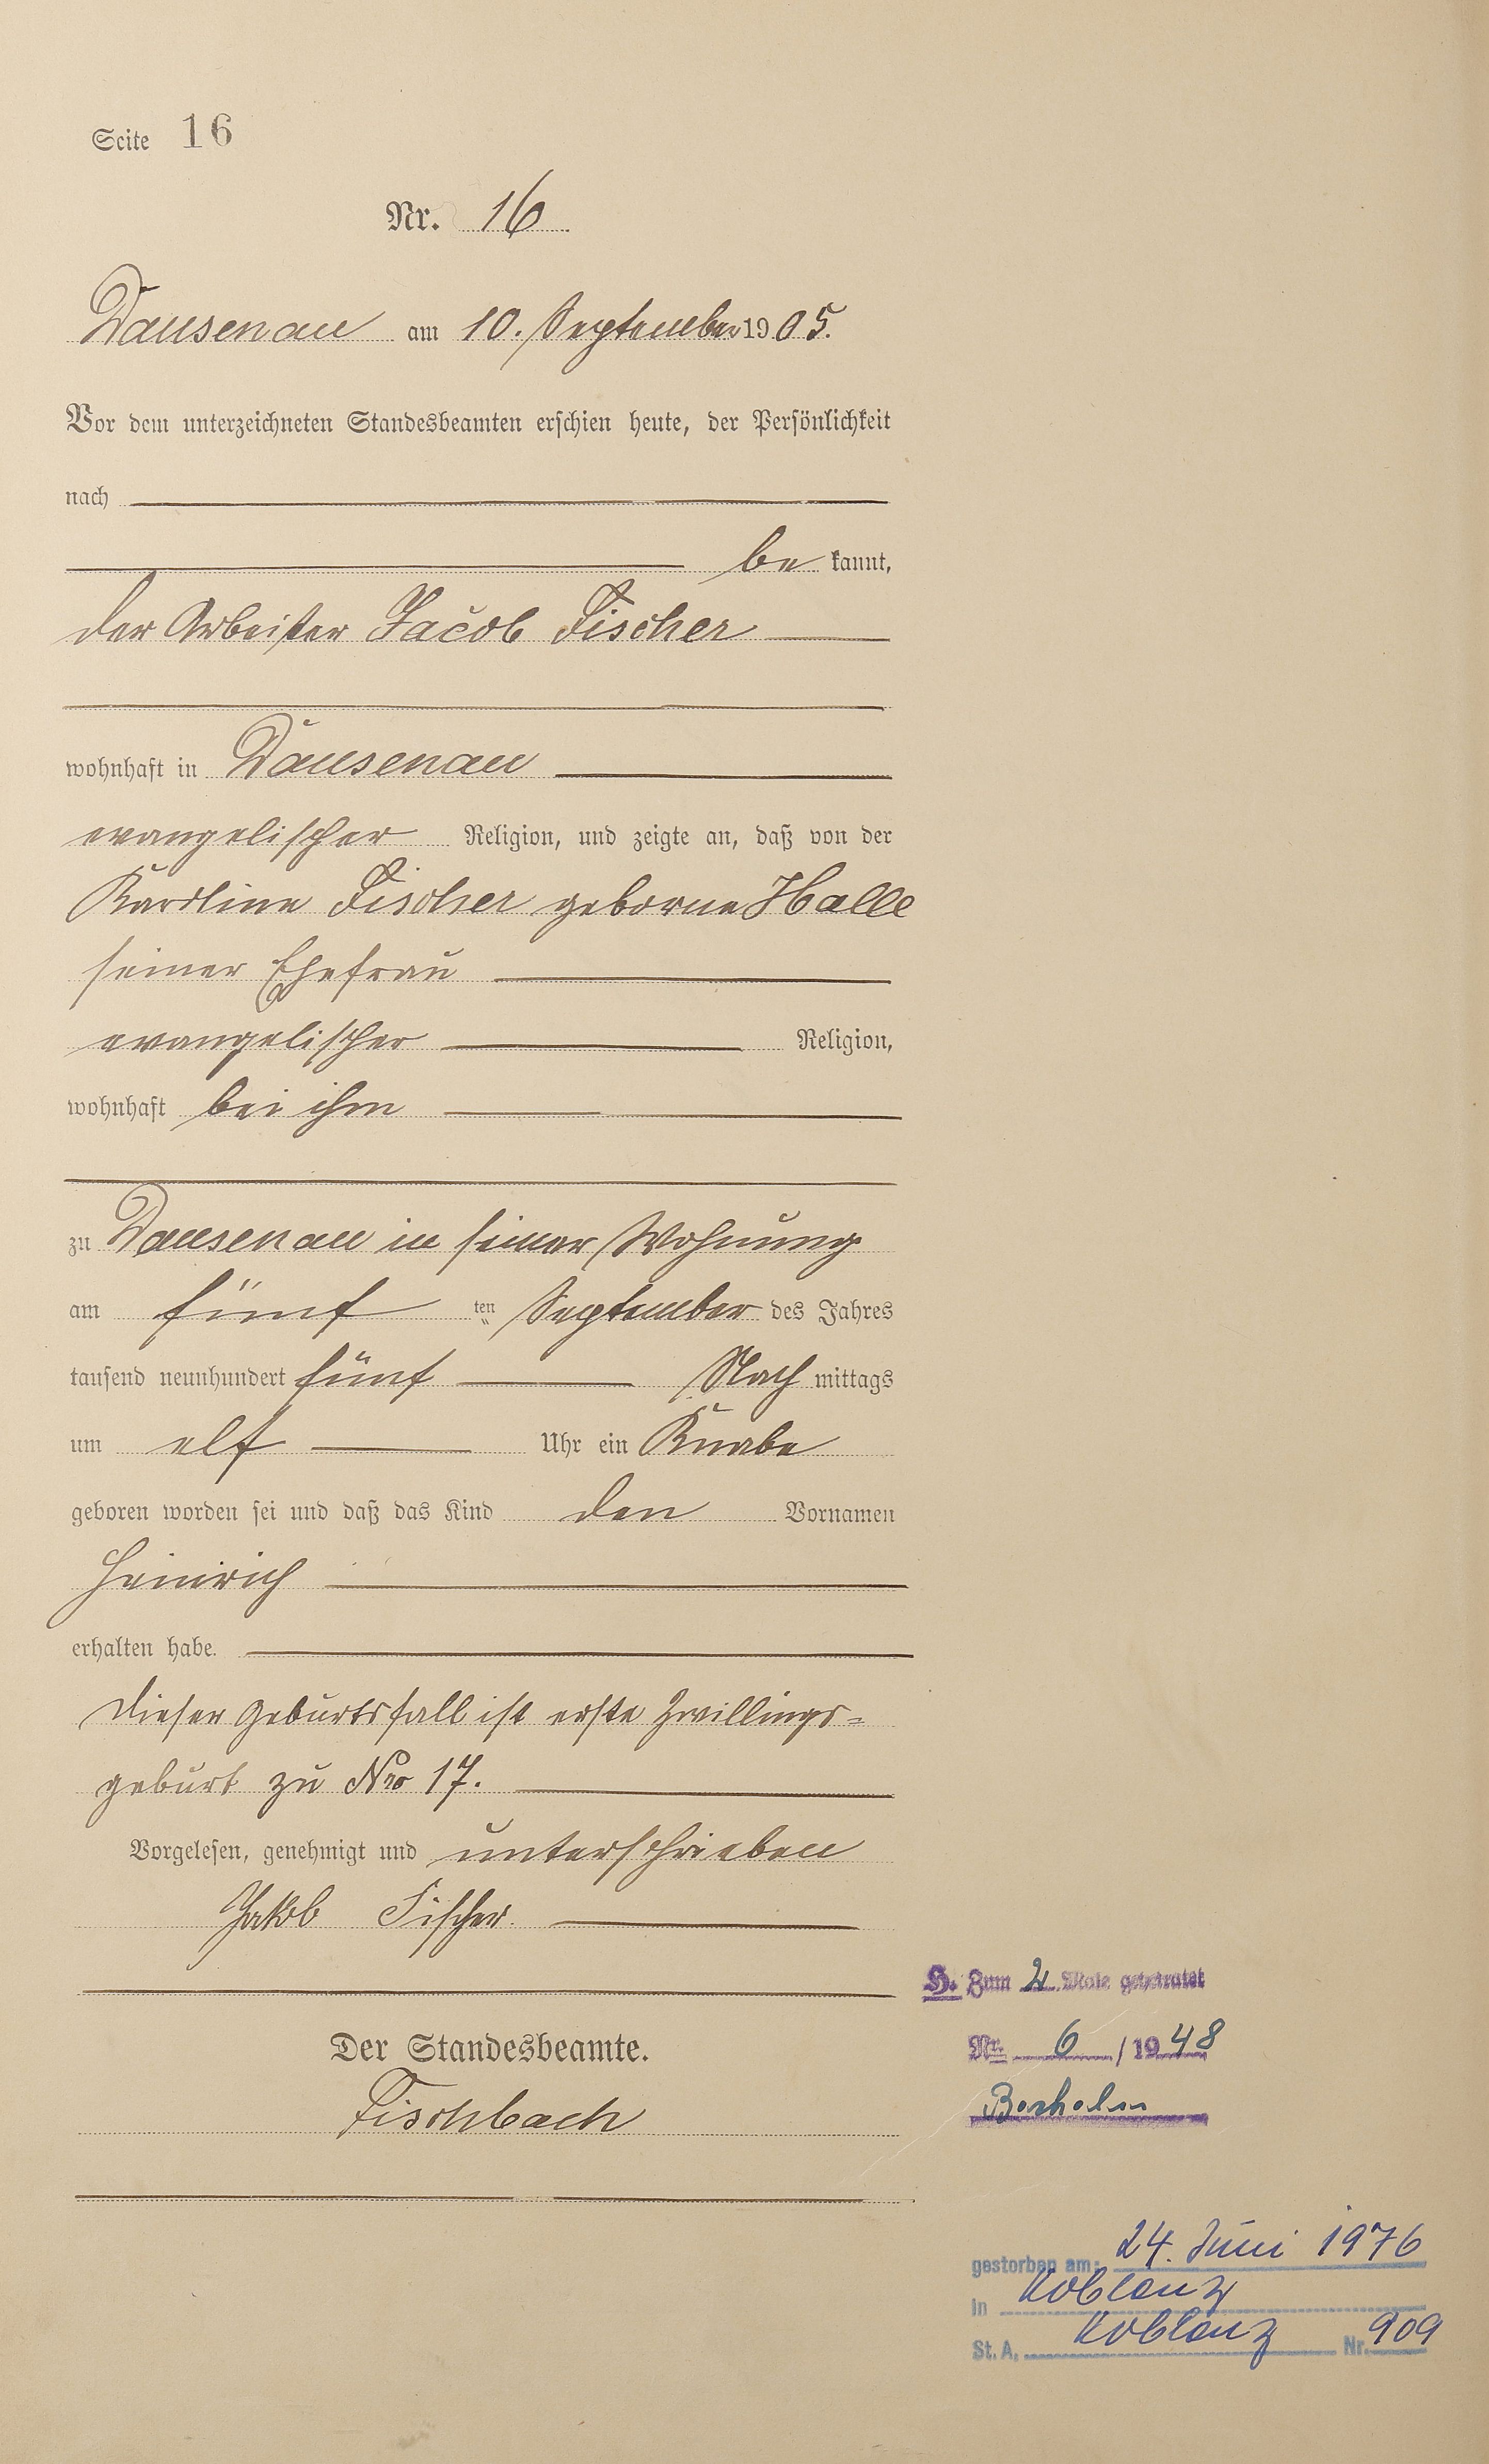 Seite 16
Nr. 16
Dausenau am 10. September 1905.
Vor dem unterzeichneten Standesbeamten erschien heute, der Persönlichkeit
nach
be kannt,
der Arbeiter Jacob Fischer
wohnhaft in Dausenau
evangelischer Religion, und zeigte an, daß von der
Karoline Fischer geborne Halle
seiner Ehefrau
evangelischer Religion,
wohnhaft bei ihm
zu Dausenau in seiner Wohnung
am fünf ten September des Jahres
tausend neunhundert fünf Nach mittags
um elf Uhr ein Knabe
geboren worden sei und daß das Kind den Vornamen
Heinrich
erhalten habe.
Dieser Geburtsfall ist erste Zwillings-
geburt zu Nro 17.
Vorgelesen, genehmigt und unterschrieben
Jakob Fischer.
Der Standesbeamte.
Fischbach
H. Zum 2. Male geheiratet
Nr. 6 / 1948
gestorben am: 24. Juni 1976
in Koblenz
St. A. Koblenz Nr. 909